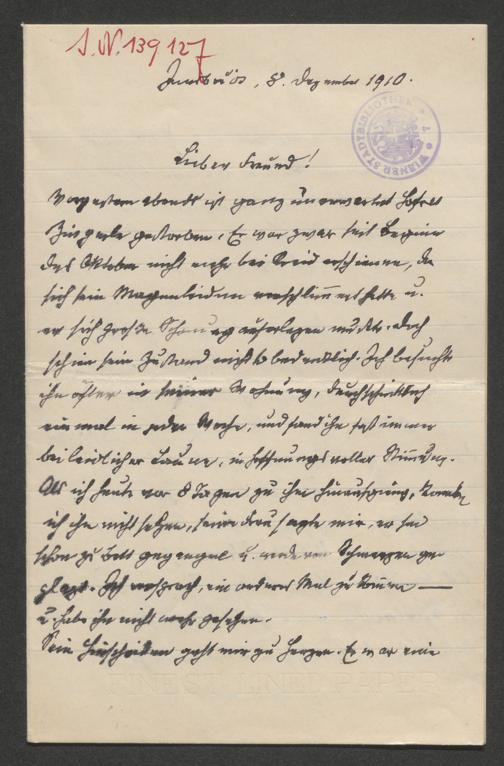 I.N. 139127
Innsbruck, 8. Dezember 1910.
WIENER STADTBIBLIOTHEK
Lieber Freund!
Vorgestern abends ist ganz unerwartet Hofrat
Zingerle gestorben. Er war zwar seit Beginn
des Oktober nicht mehr bei Kreid erschienen, da
sich sein Magenleiden verschlimmert hatte u.
er sich große Schonung auferlegen mußte. Doch
schien sein Zustand nicht bedenklich. Ich besuchte
ihn öfter in seiner Wohnung, durchschnittlich
einmal in jeder Woche, und fand ihn fast immer
bei leidlicher Laune, in hoffnungsvoller Stimmung.
Als ich heute vor 8 Tagen zu ihm hinausging, konnte
ich ihn nicht sehen, seine Frau sagte mir, er sei
schon zu Bett gegangen u. werde von Schmerzen ge-
plagt. Ich versprach, ein anderes Mal zu kommen —
u. habe ihn nicht mehr gesehen.
Sein Hinscheiden geht mir zu Herzen. Er war mir